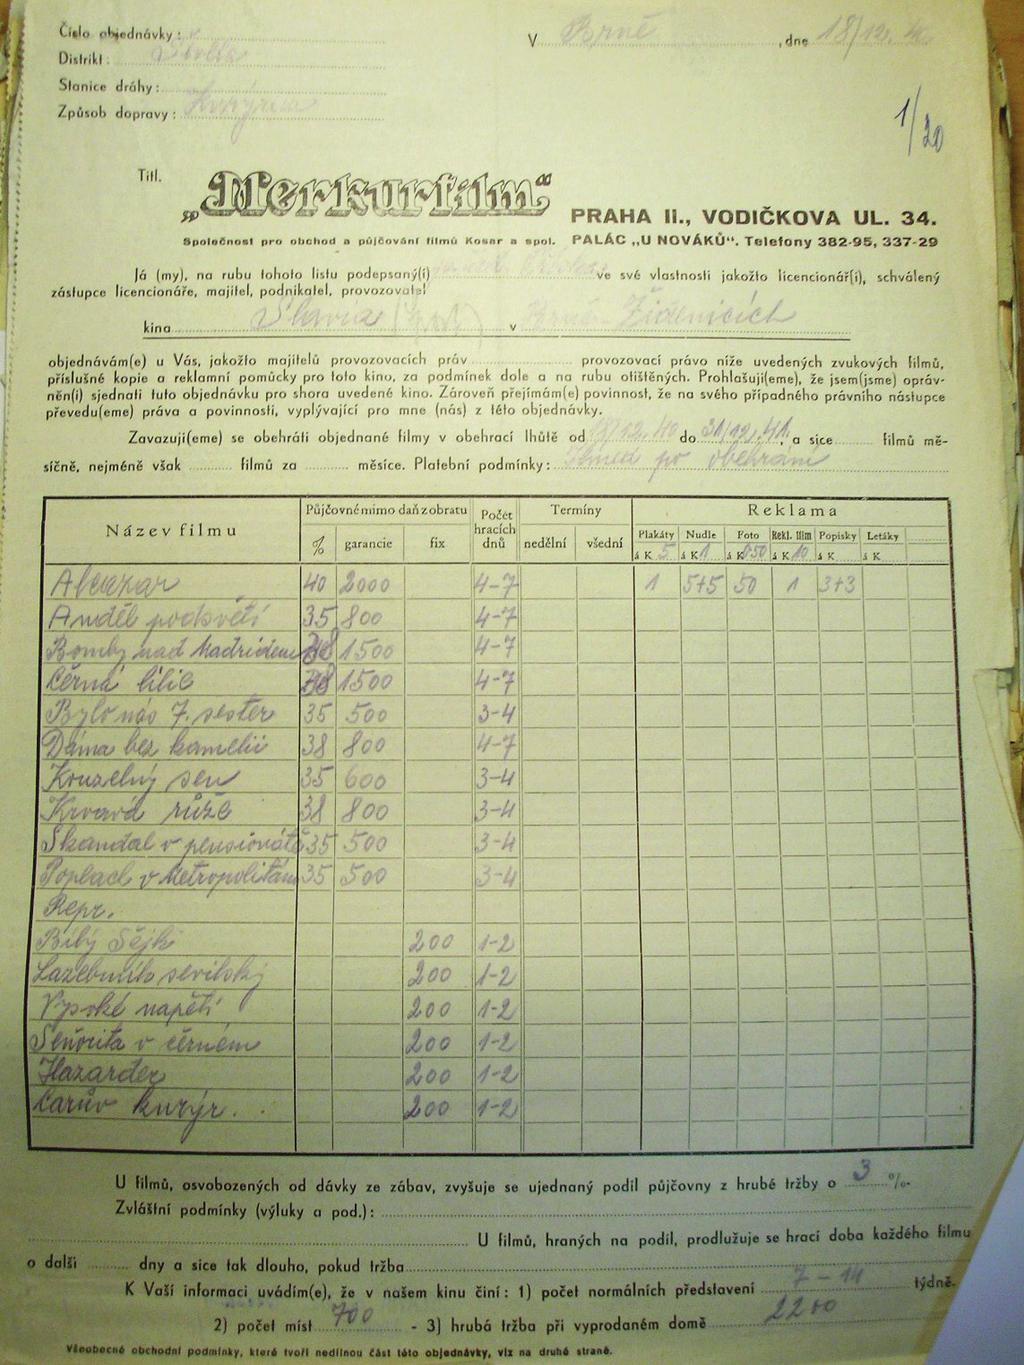 Číslo objednávky:
V Brně, dne 18/12. 40.
Distrikt:
Stanice dráhy:
Způsob dopravy:
1/20
Titl.
„Merkurfilm“
PRAHA II., VODIČKOVA UL. 34.
Společnost pro obchod a půjčování filmů Kosar a spol. PALÁC „U NOVÁKŮ“. Telefony 382-95, 337-29
Já (my), na rubu tohoto listu podepsaný(í) ve své vlastnosti jakožto licencionář(i), schválený
zástupce licencionáře, majitel, podnikatel, provozovatel
kina Slavia v Brně-Židenicích
objednávám(e) u Vás, jakožto majitelů provozovacích práv provozovací právo níže uvedených zvukových filmů,
příslušné kopie a reklamní pomůcky pro toto kino, za podmínek dole a na rubu otištěných. Prohlašuji(eme), že jsem(jsme) opráv-
něn(i) sjednati tuto objednávku pro shora uvedené kino. Zároveň přejímám(e) povinnost, že na svého případného právního nástupce
převedu(eme) práva a povinnosti, vyplývající pro mne (nás) z této objednávky.
Zavazuji(eme) se obehráti objednané filmy v obehrací lhůtě od 18/12. 40 do 31/12. 41., a sice filmů mě-
síčně, nejméně však filmů za měsíce. Platební podmínky: Ihned po obehrání
Název filmu Půjčovné mimo daň z obratu Počet hracích dnů Termíny Reklama
% garancie fix nedělní všední Plakáty Nudle Foto Rekl. film Popisky Letáky
á K 5 á K 1 á K 0·50 á K 10 á K á K
Alcazar 40 2000 4-7 1 5+5 50 1 3+3
Anděl podsvětí 35 800 4-7
Bomby nad Madridem 38 1500 4-7
Černá lilie 38 1500 4-7
Bylo nás 7 sester 35 500 3-4
Dáma bez kamelií 38 800 4-7
Kouzelný sen 35 600 3-4
Krvavá růže 38 800 3-4
Skandal v pensionátě 35 500 3-4
Poplach v Metropolitánu 35 500 3-4
Repr.
Bílý šejk 200 1-2
Lazebník sevilský 200 1-2
Vysoké napětí 200 1-2
Señorita v černém 200 1-2
Hazarder 200 1-2
Carův kurýr. 200 1-2
U filmů, osvobozených od dávky ze zábav, zvyšuje se ujednaný podíl půjčovny z hrubé tržby o 3 %.
Zvláštní podmínky (výluky a pod.):
U filmů, hraných na podíl, prodlužuje se hrací doba každého filmu
o další dny a sice tak dlouho, pokud tržba
K Vaší informaci uvádím(e), že v našem kinu činí: 1) počet normálních představení 7-14 týdně.
2) počet míst 700 - 3) hrubá tržba při vyprodaném domě 2200
Všeobecné obchodní podmínky, které tvoří nedílnou část této objednávky, viz na druhé straně.